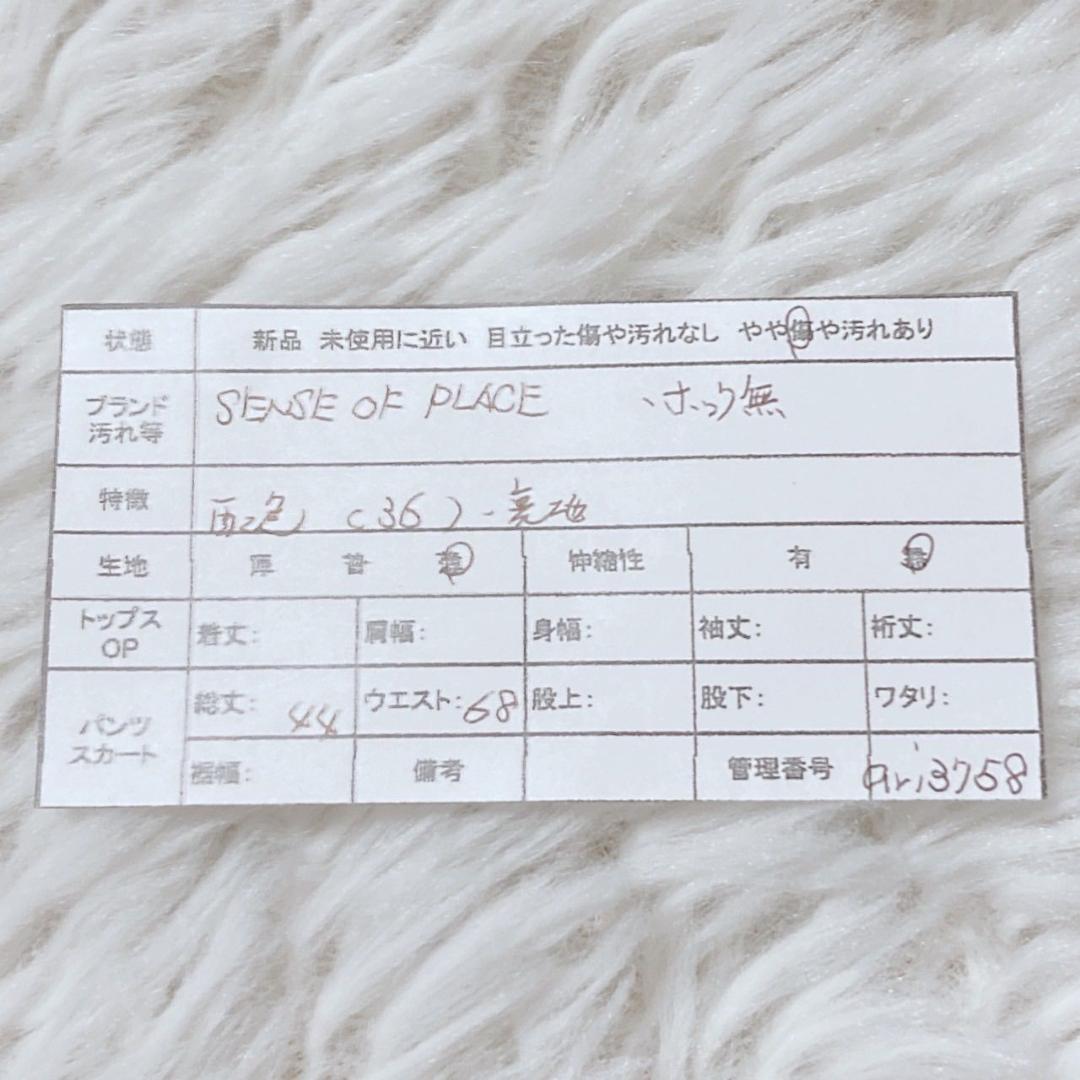 状態 新品 未使用に近い 目立った傷や汚れなし やや傷や汚れあり
ブランド 汚れ等 SENSE OF PLACE ・ホック無
特徴 配色 (36) ・裏地
生地 厚 普 薄 伸縮性 有 無
トップス OP 着丈: 肩幅: 身幅: 袖丈: 裄丈:
パンツ スカート 総丈: 44 ウエスト: 68 股上: 股下: ワタリ:
裾幅: 備考 管理番号 ari3758